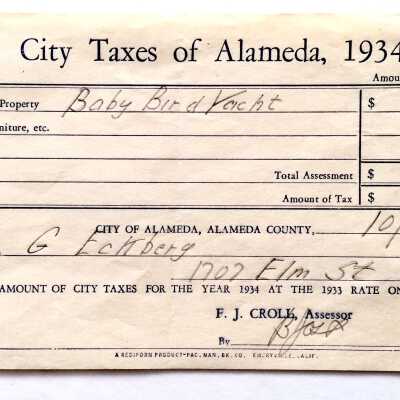 City Taxes of Alameda, 1934
Amou
Property Baby Bird Yacht $
niture, etc.
Total Assessment $
Amount of Tax $
CITY OF ALAMEDA, ALAMEDA COUNTY, 10/
G Eckberg
1707 Elm St
AMOUNT OF CITY TAXES FOR THE YEAR 1934 AT THE 1933 RATE ON
F. J. CROLL, Assessor
By
A REDIFORM PRODUCT-PAC. MAN. BK. CO. EMERYVILLE, CALIF.